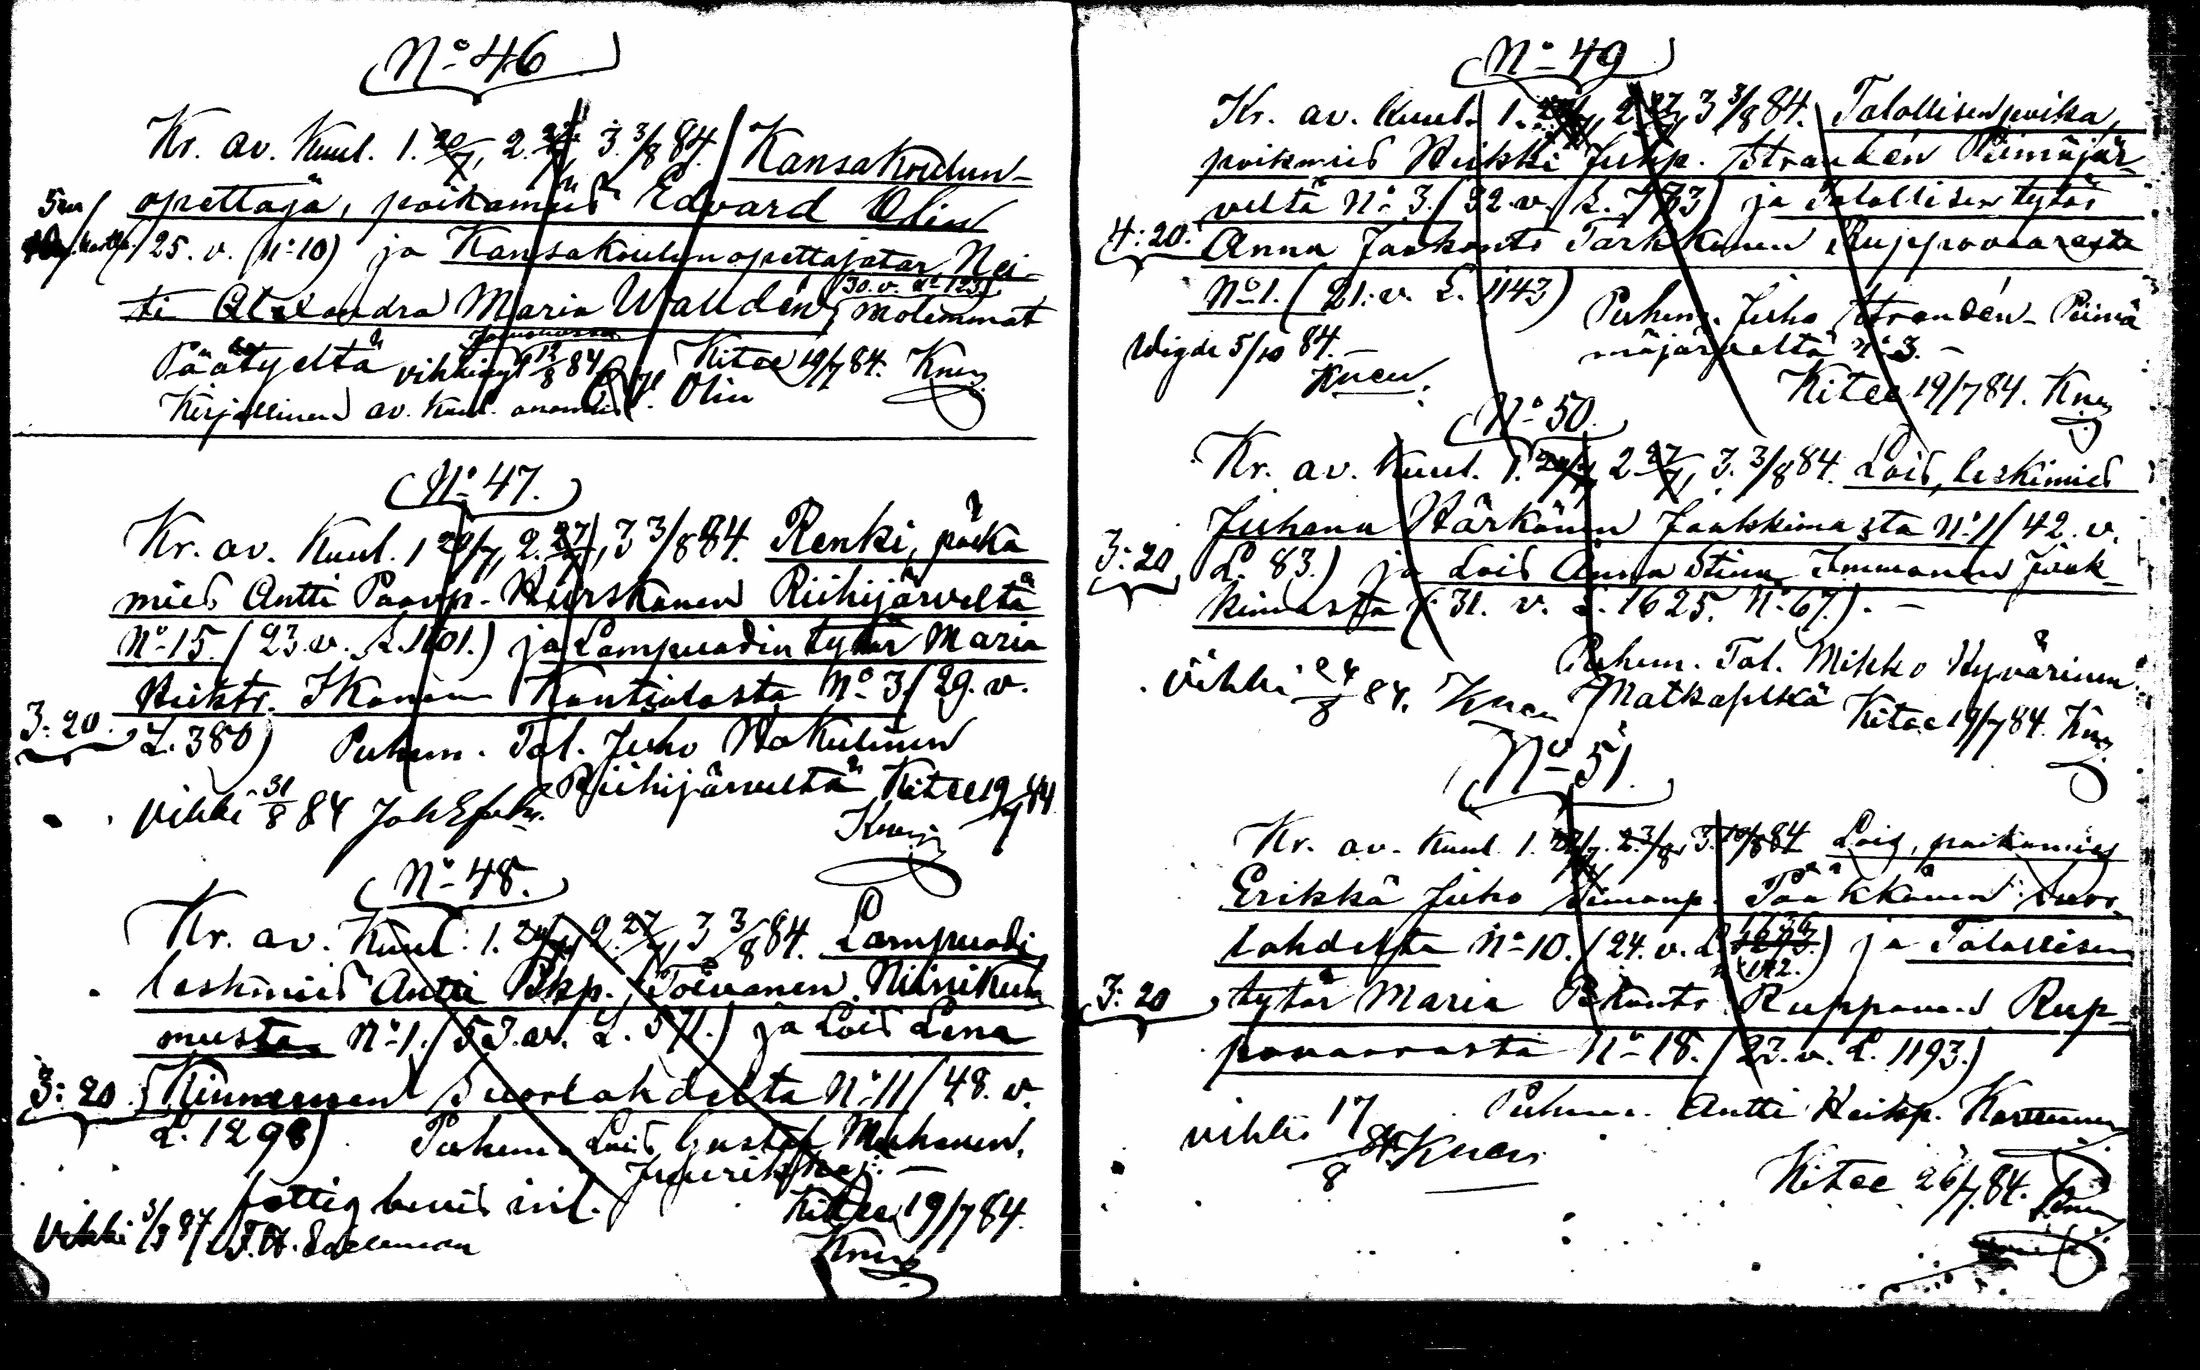 No 46
Kr. av. Kuul. 1. 20/7, 2. 27/7, 3. 3/8 84. Kansakoulun-
opettaja, poikamies Edvard Olin
(25. v. No 10) ja Kansakoulunopettajatar, Nei-
ti Alexandra Maria Wallden, (30. v. molemmat
Päätyeltä vihkinyt 12/8 84 Kitee 19/7 84. Knen
Kirjallinen av. kuul. Olin
No 47.
Kr. av. Kuul. 1 20/7, 2. 27/7, 3 3/8 84. Renki, poika
mies Antti Paavp. Hirskanen Riihijärveltä
No 15. (23. v. L. 1101.) ja Lampuodin tytär Maria
Heikts. Ikonen Kontiolasta No 3 (29. v.
3:20. L. 380) Puhem. Tal. Juho Hakulinen
Riihijärveltä Kitee 19/7 84
vihki 31/8 84 Knen
No 48.
Kr. av. Kuul. 1. 20/7, 2. 27/7, 3 3/8 84. Lampuodi
leskmies Antti Pkp. Toivanen Niinikum
musta No 1. (53. v. L. 571.) ja Lois Lena
3:20. Kinnunen Suorlahdelta No 11 (48. v.
L. 1298) Puhem. Lois Gustaf Muhonen,
Juurikkaj.
fattig bevis inl. Kitee 19/7 84.
Vihki 3/8 84 Knen
No 49
Kr. av. Kuul. 1. 20/7, 2. 27/7, 3 3/8 84. Talollisenpoika,
poikmies Heikki Juhp. Strandén Piimäjär-
veltä No 3. (32. v. L. 783) ja Talollisen tytär
4:20. Anna Jaakonts Tarkkonen Ruppovaarasta
No 1. (21. v. L. 1143) Puhem. Juho Strandén Piimä
Wigde 5/10 84. mäjärveltä No 3.
Knen. Kitee 19/7 84. Knen
No 50.
Kr. av. Kuul. 1. 20/7, 2 27/7, 3. 3/8 84. Lois, leskimies
Juhana Härkönen Jaakkimasta No 1 (42. v.
3:20 L. 83.) ja Lois Anna Stina Immonen Jaak-
kimasta (31. v. L. 1625. No 67).
Puhem. Tal. Mikko Hyvärinen
vihki 24/8 84. Knen Matkaselkä Kitee 19/7 84. Knen
No 51.
Kr. av. Kuul. 1. 27/7. 2. 3/8, 3. 10/8 84 Lois, poikamies
Erikkä Juho Simonp. Pääkkönen Suor-
lahdelta No 10. (24. v. L.) ja Talollisen
3:20 tytär Maria Ruppovaara Rup-
povaarasta No 18. (23. v. L. 1193.)
Puhem. Antti Heikp.
vihki 17/8 84 Knen
Kitee 26/7 84. Knen